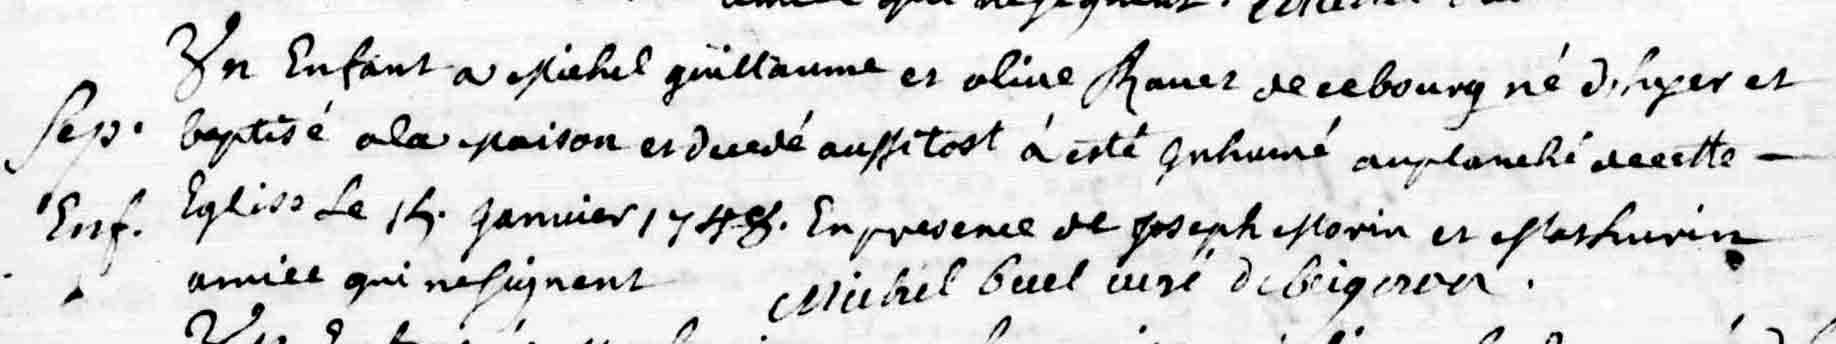 qui ne signent. Michel
Un Enfant a Michel guillaume et olive Rouet de ce bourg né d'hyer et
Sep. baptisé a la Maison et decedé aussitost a esté Inhumé au planché de cette –
Enf. Eglise Le 15. Janvier 1748. En presence de Joseph Morin et Mathurin
amice qui ne signent Michel buel curé de
Un Enfant